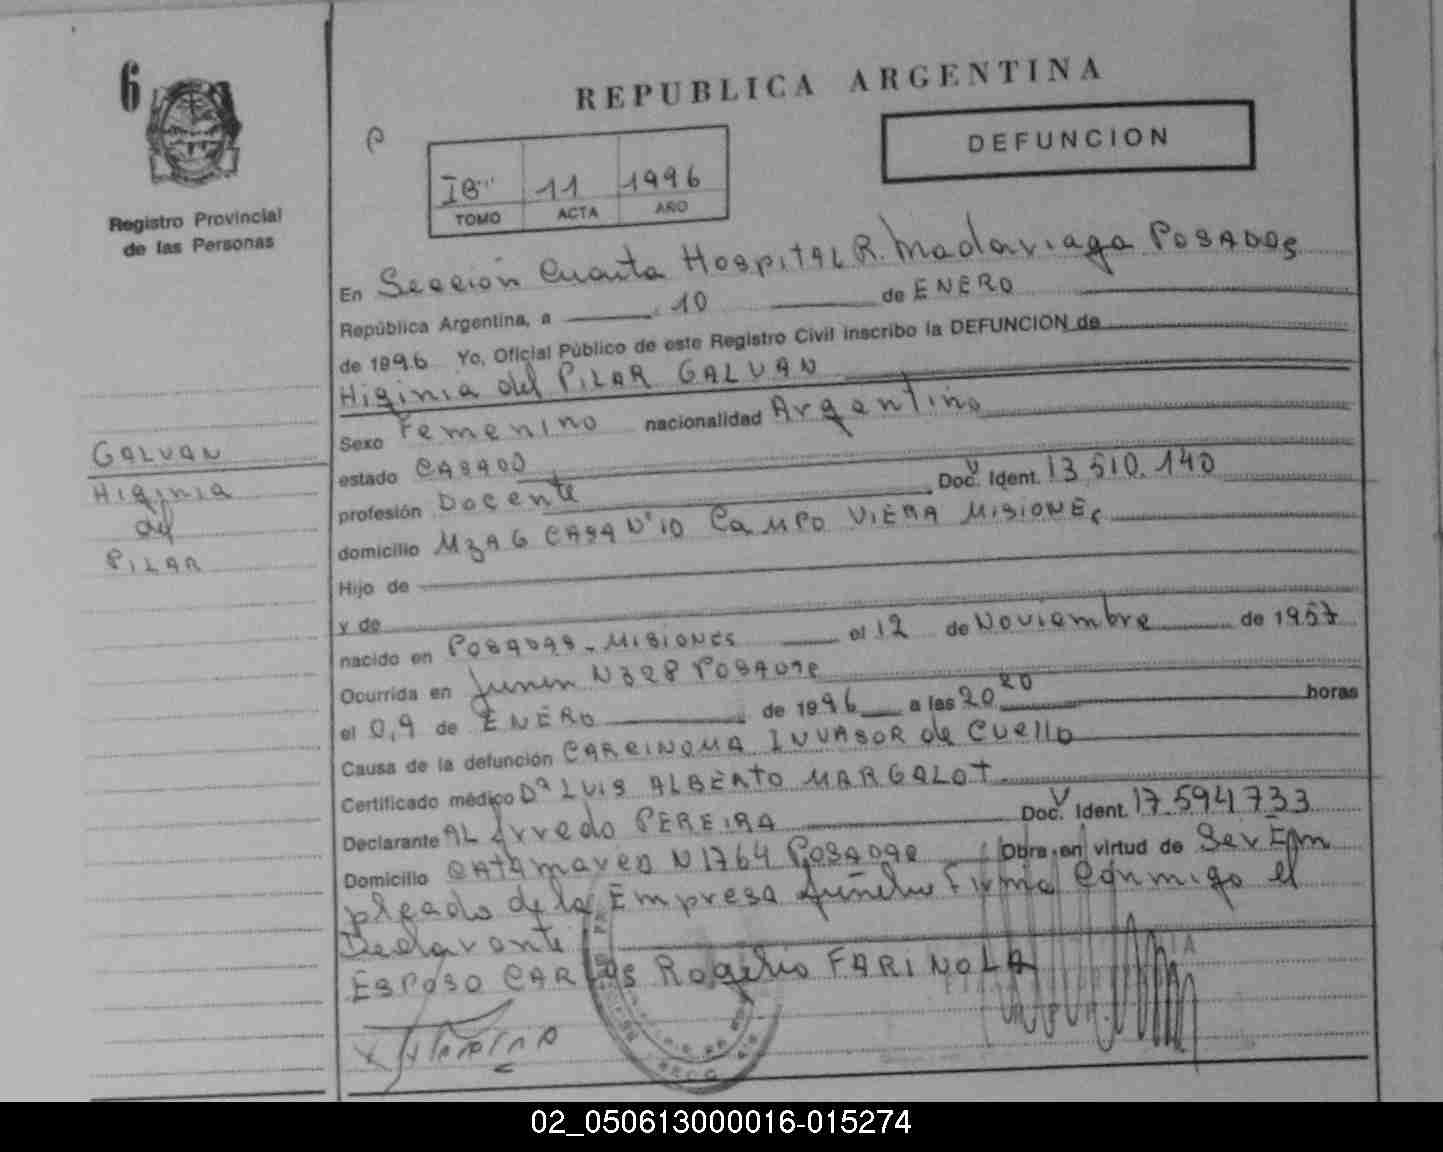 6
REPUBLICA ARGENTINA
DEFUNCION
11 1996
TOMO ACTA AÑO
Registro Provincial
de las Personas
En Sección Cuarta Hospital R. Madariaga POSADAS
República Argentina, a 10 de ENERO
de 1996 Yo, Oficial Público de este Registro Civil inscribo la DEFUNCION de
Higinia del PILAR GALVAN
Sexo Femenino nacionalidad Argentina
estado CASADO
profesión Docente Doc. Ident. 13.510.140
domicilio MZA 6 CASA Nº 10 CAMPO VIERA MISIONES
Hijo de
y de
nacido en POSADAS - MISIONES el 12 de Noviembre de 1957
Ocurrida en Junin N 328 POSADAS
el 0,9 de ENERO de 1996 a las 20 20 horas
Causa de la defunción CARCINOMA INVASOR de Cuello
Certificado médico Dr LUIS ALBERTO MARGALOT
Declarante ALfredo PEREIRA Doc. Ident. 17.594.733
Domicilio CATAMARCA N 1764 POSADAS Obra en virtud de Ser Em
pleado de la Empresa Firma Conmigo el
Declarante
ESPOSO CARLOS Rogelio FARINOLA
GALVAN
Higinia
del
PILAR
02_050613000016-015274